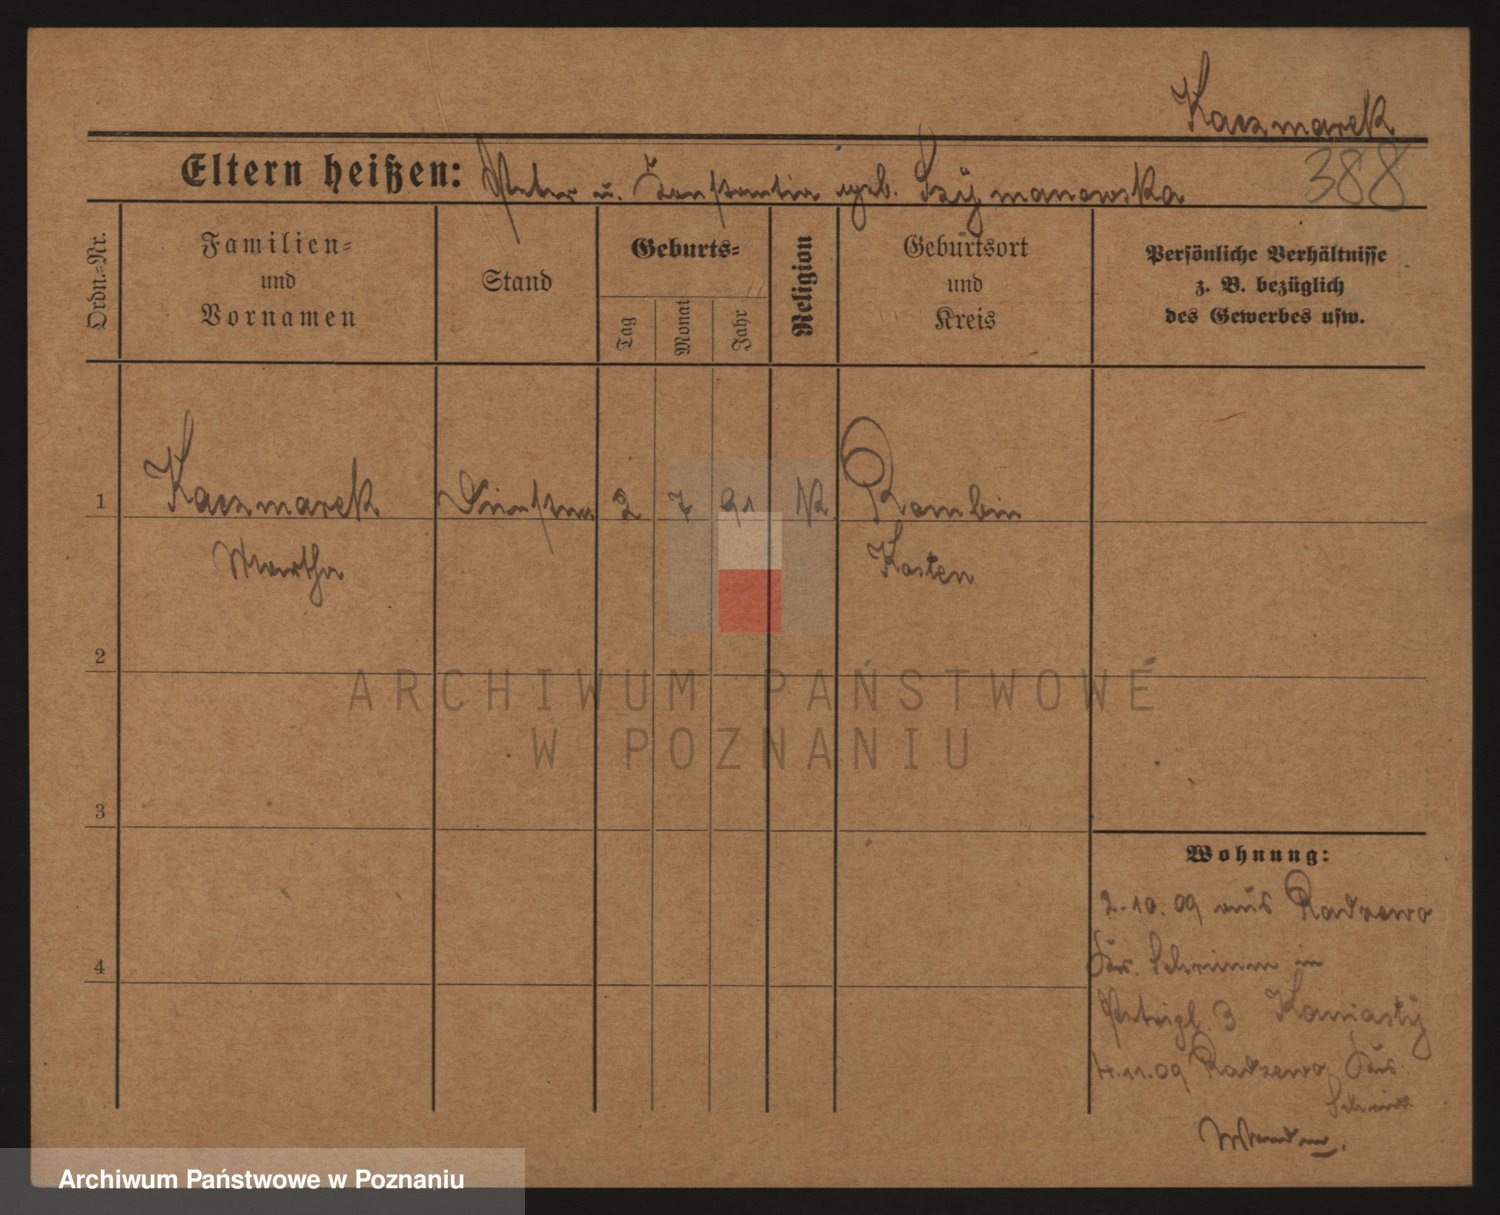 Kaczmarek
388
Eltern heißen: Peter u. Konstantia geb. Szymanowska
Ordn.=Nr.
Familien=
und
Vornamen
Stand
Geburts=
Tag
Monat
Jahr
Religion
Geburtsort
und
Kreis
Persönliche Verhältnisse
z. B. bezüglich
des Gewerbes usw.
1 Kaczmarek 2 7 91 K Rombin
Martha Kosten
2
ARCHIWUM PAŃSTWOWE
W POZNANIU
3
Wohnung:
2.10.09 aus Radzewo
Schrimm in
4
3 Kaniasty
4.11.09 Radzewo Krs
Archiwum Państwowe w Poznaniu